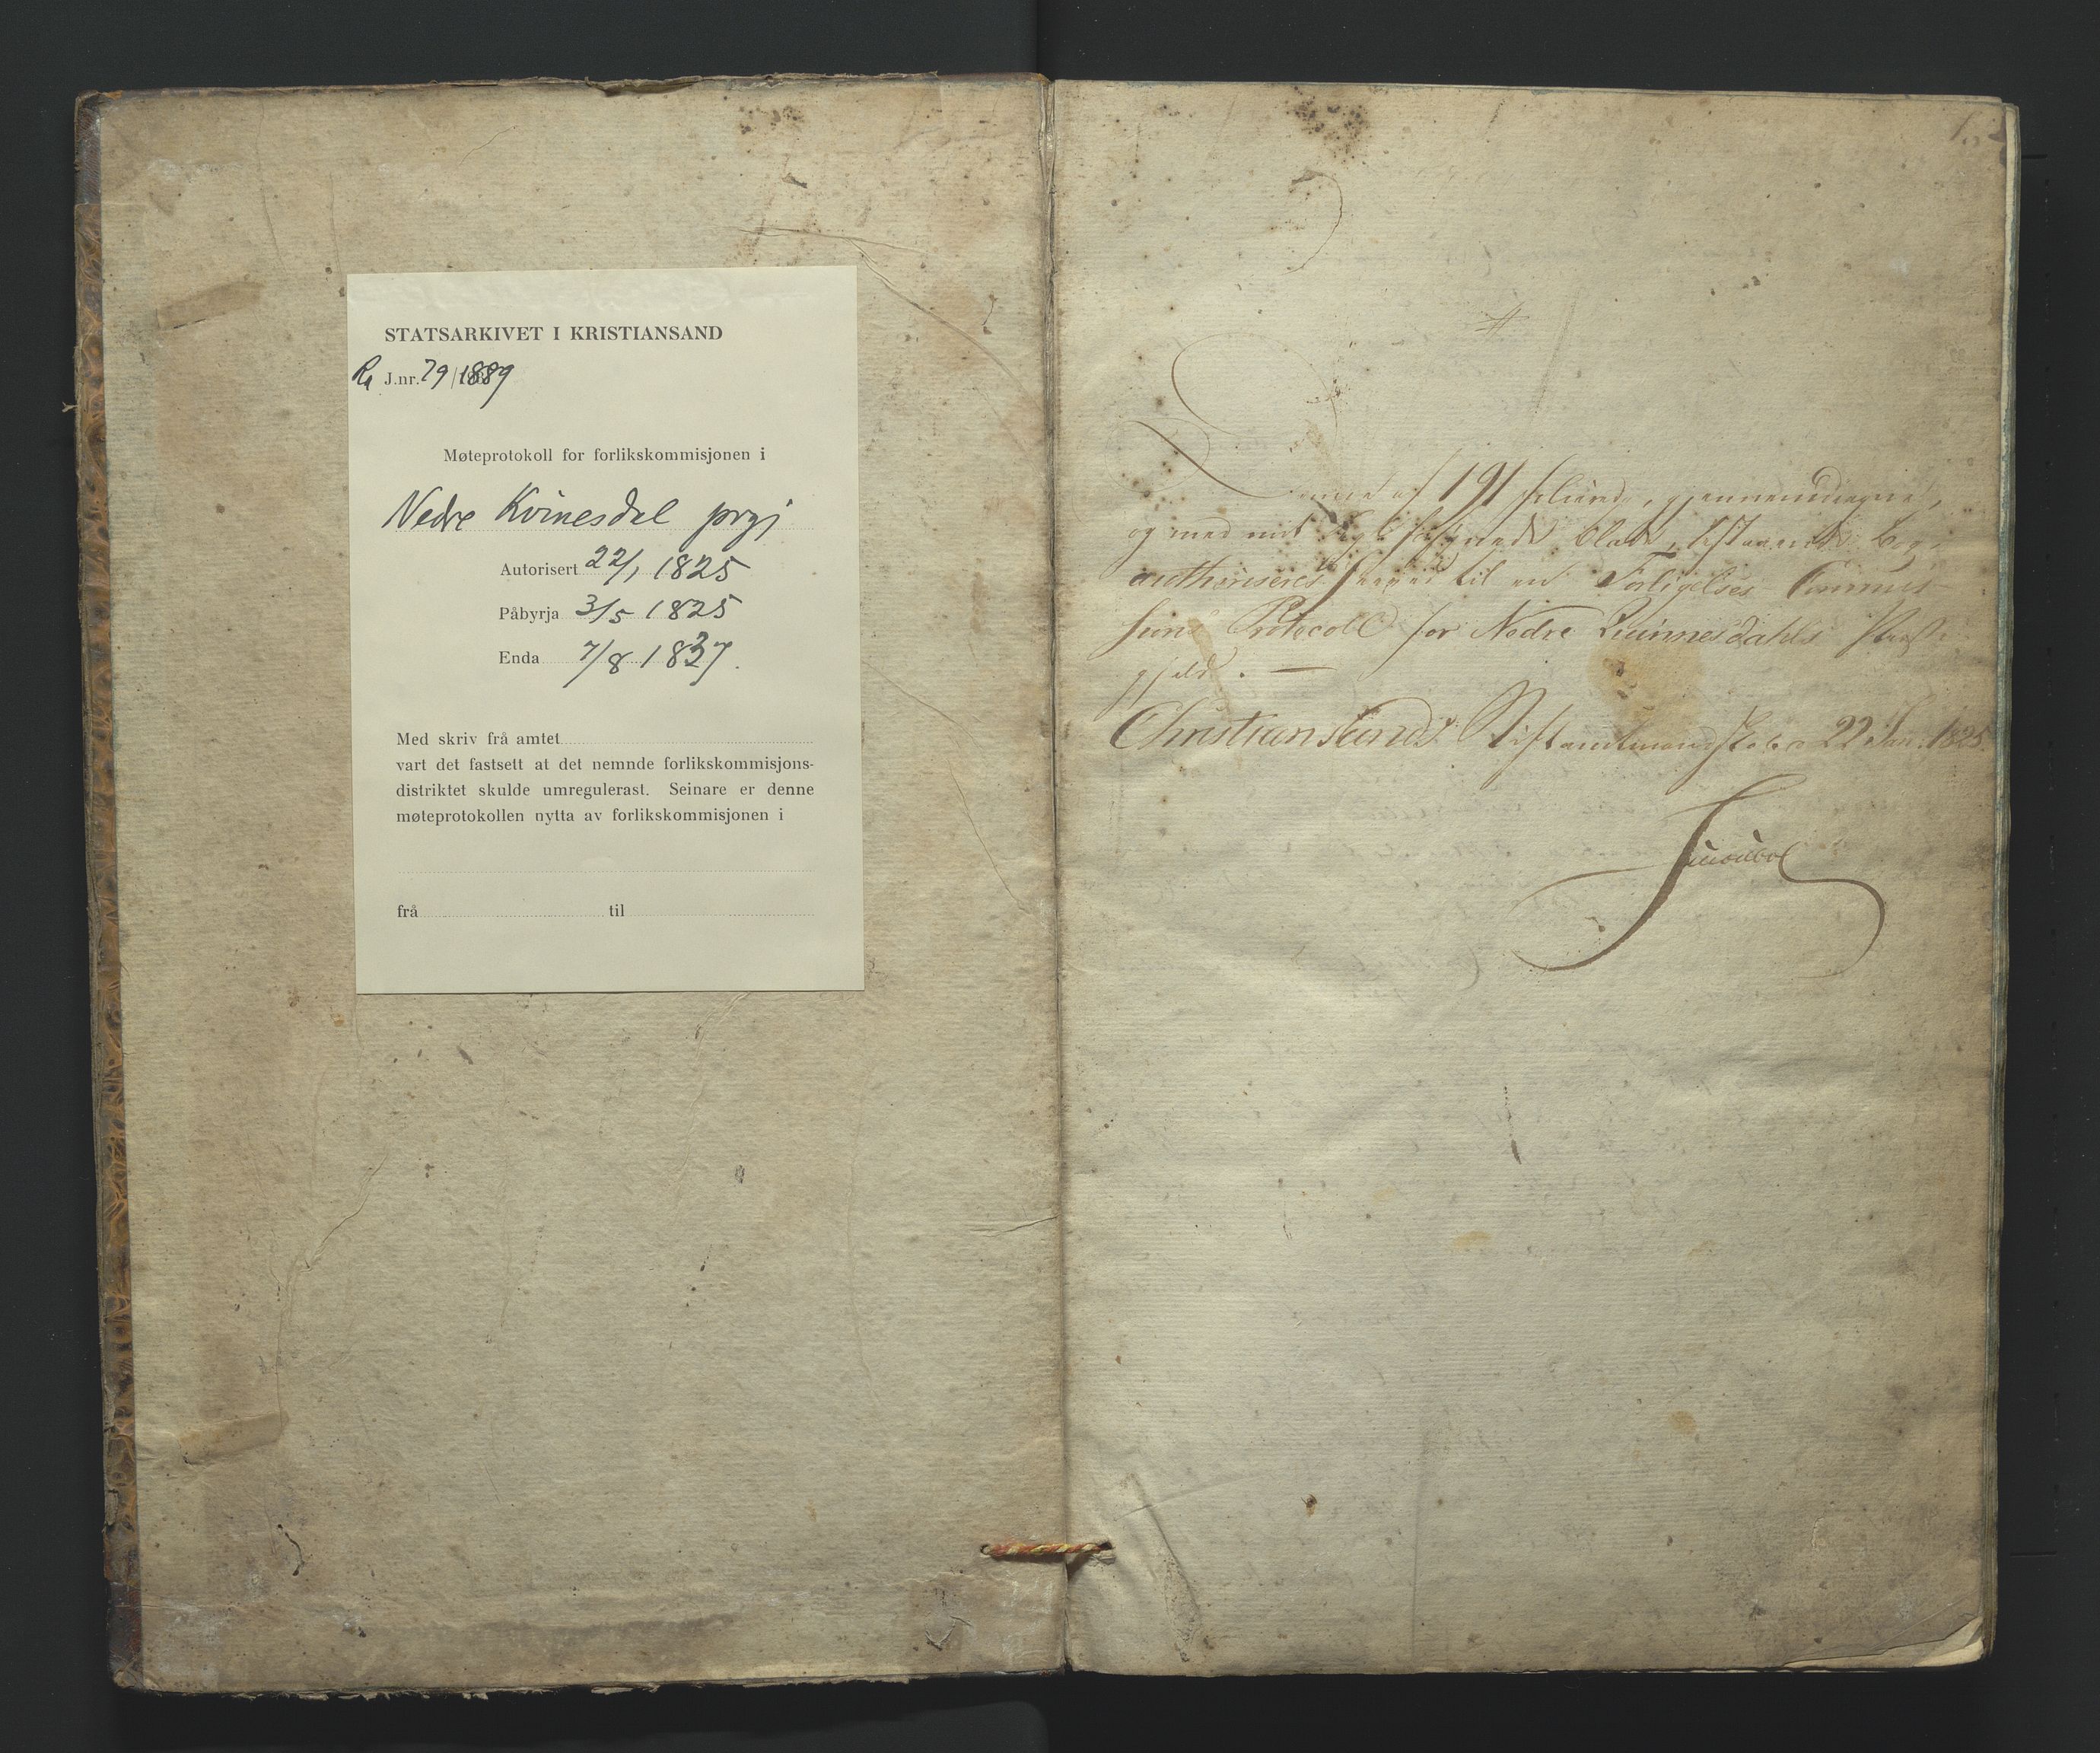 STATSARKIVET I KRISTIANSAND
Ra J.nr. 79/1889
Møteprotokoll for forlikskommisjonen i
Nedre Kvinesdal prgj
Autorisert 22/1 1825
Påbyrja 3/5 1825
Enda 7/8 1837.
Med skriv frå amtet
vart det fastsett at det nemnde forlikskommisjons-
distriktet skulde umregulerast. Seinare er denne
møteprotokollen nytta av forlikskommisjonen i
frå til
Denne af 191 foliered, gjennemdragne,
og med mit Segl forsynede Blade, bestaaende Bog
authoriseres herved til en Forligelses Commis
sions Protocoll for Nedre Quinnesdahls Præste
gjeld. —
Christiansands Stiftamtmandskab 22 Jan. 1825.